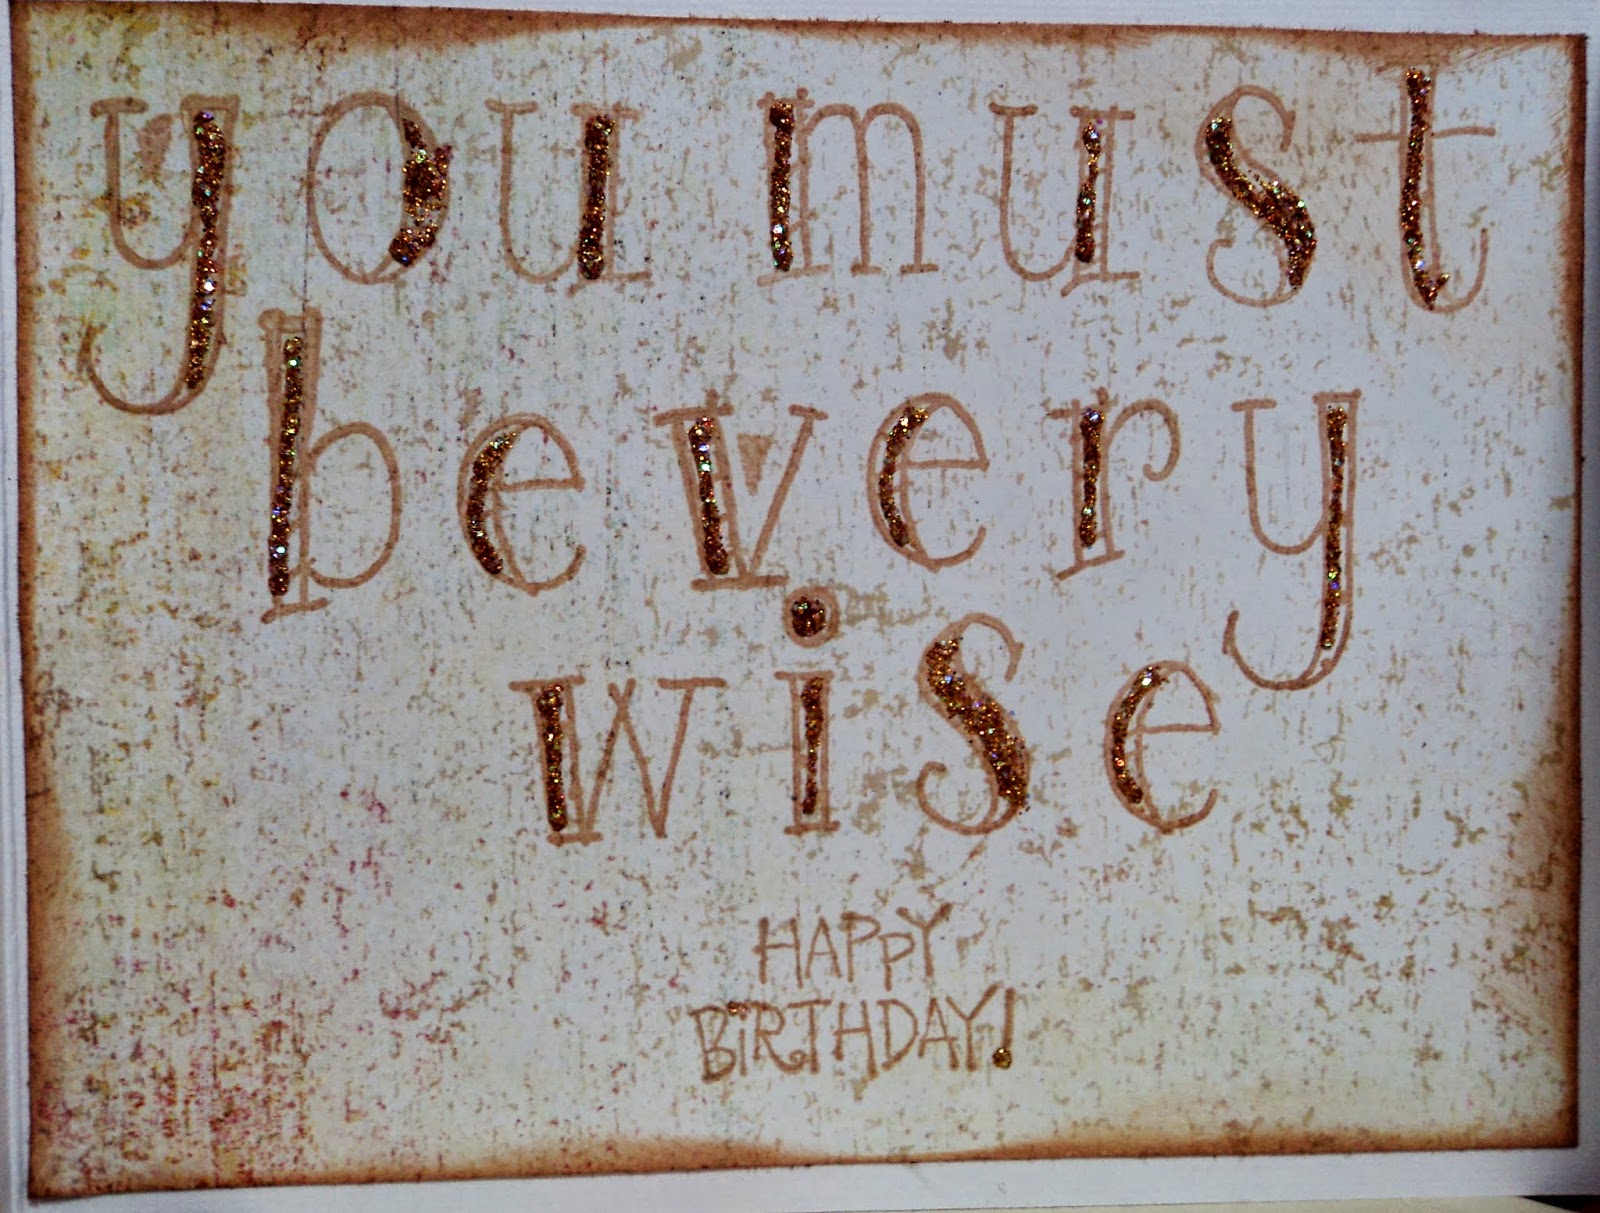 you must
be very
wise
HAPPY
BiRTHDAY!